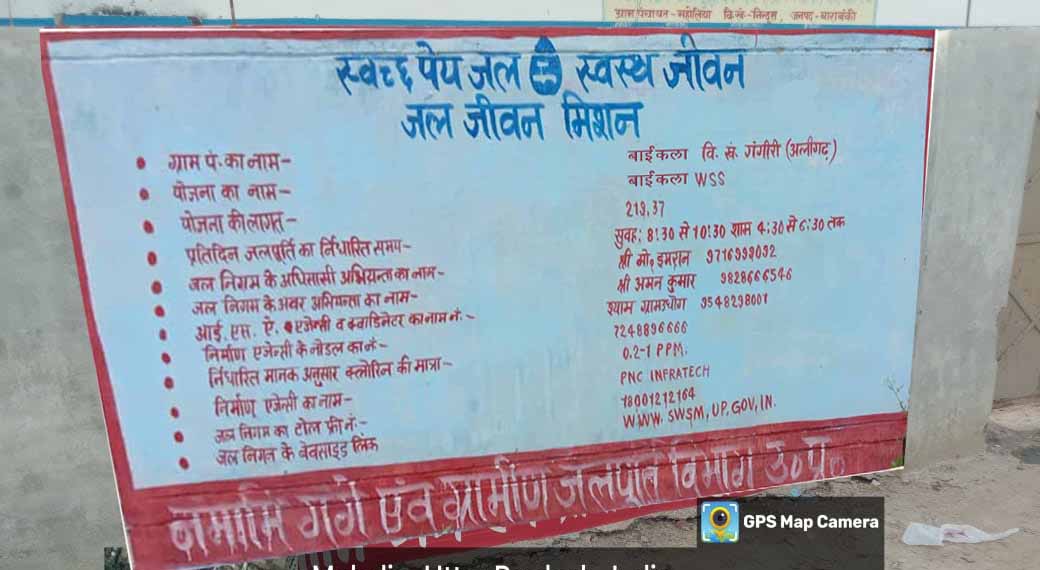 ग्राम पंचायत-महोलिया वि.खं.-निन्दूरा, जनपद-बाराबंकी
स्वच्छ पेय जल स्वस्थ जीवन
जल जीवन मिशन
• ग्राम पं. का नाम- बाईकला वि. सं. गंगीरी (अलीगढ़)
• योजना का नाम- बाईकला WSS
• योजना की लागत- 219.37
• प्रतिदिन जलपूर्ति का र्निधारित समय- सुवह: 8:30 से 10:30 शाम 4:30 से 6:30 तक
• जल निगम के अधिसासी अभियन्ता का नाम- श्री मो॰ इमरान 9716999092
• जल निगम के अवर अभियन्ता का नाम- श्री अमन कुमार 9828666546
• आई. एस. ऐ. एजेन्सी व क्वाडिनेटर का नाम नं.- श्याम ग्रामउधोग 9548298001
• निर्माण एजेन्सी के नोडल का नं- 7248896666
• र्निधारित मानक अनुसार क्लोरिन की मात्रा- 0.2-1 PPM.
• निर्माण एजेन्सी का नाम- PNC INFRATECH
• जल निगम का टोल फ्री नं.- 18001212164
• जल निगम के वेबसाइड लिंक WWW. SWSM, UP, GOV, IN.
नमामि गंगे एंव ग्रामीण जलपूर्ति विभाग उ॰प्र॰
GPS Map Camera